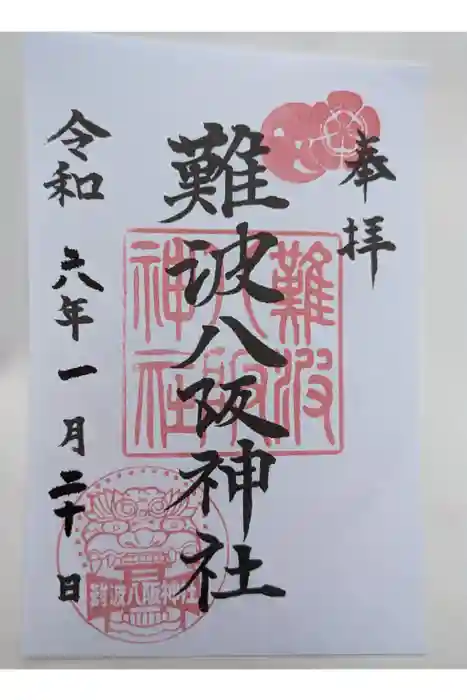 奉拝
難波八阪神社
難波八阪神社
令和六年一月二十日
難波八阪神社